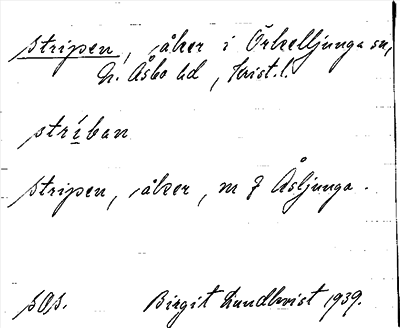 stripen, åker i Örkelljunga sn,
N. Åsbo hd, Krist. l.
stríban
stripen, åker, m f Åsljunga.
sOs. Birgit Lundkvist 1939.